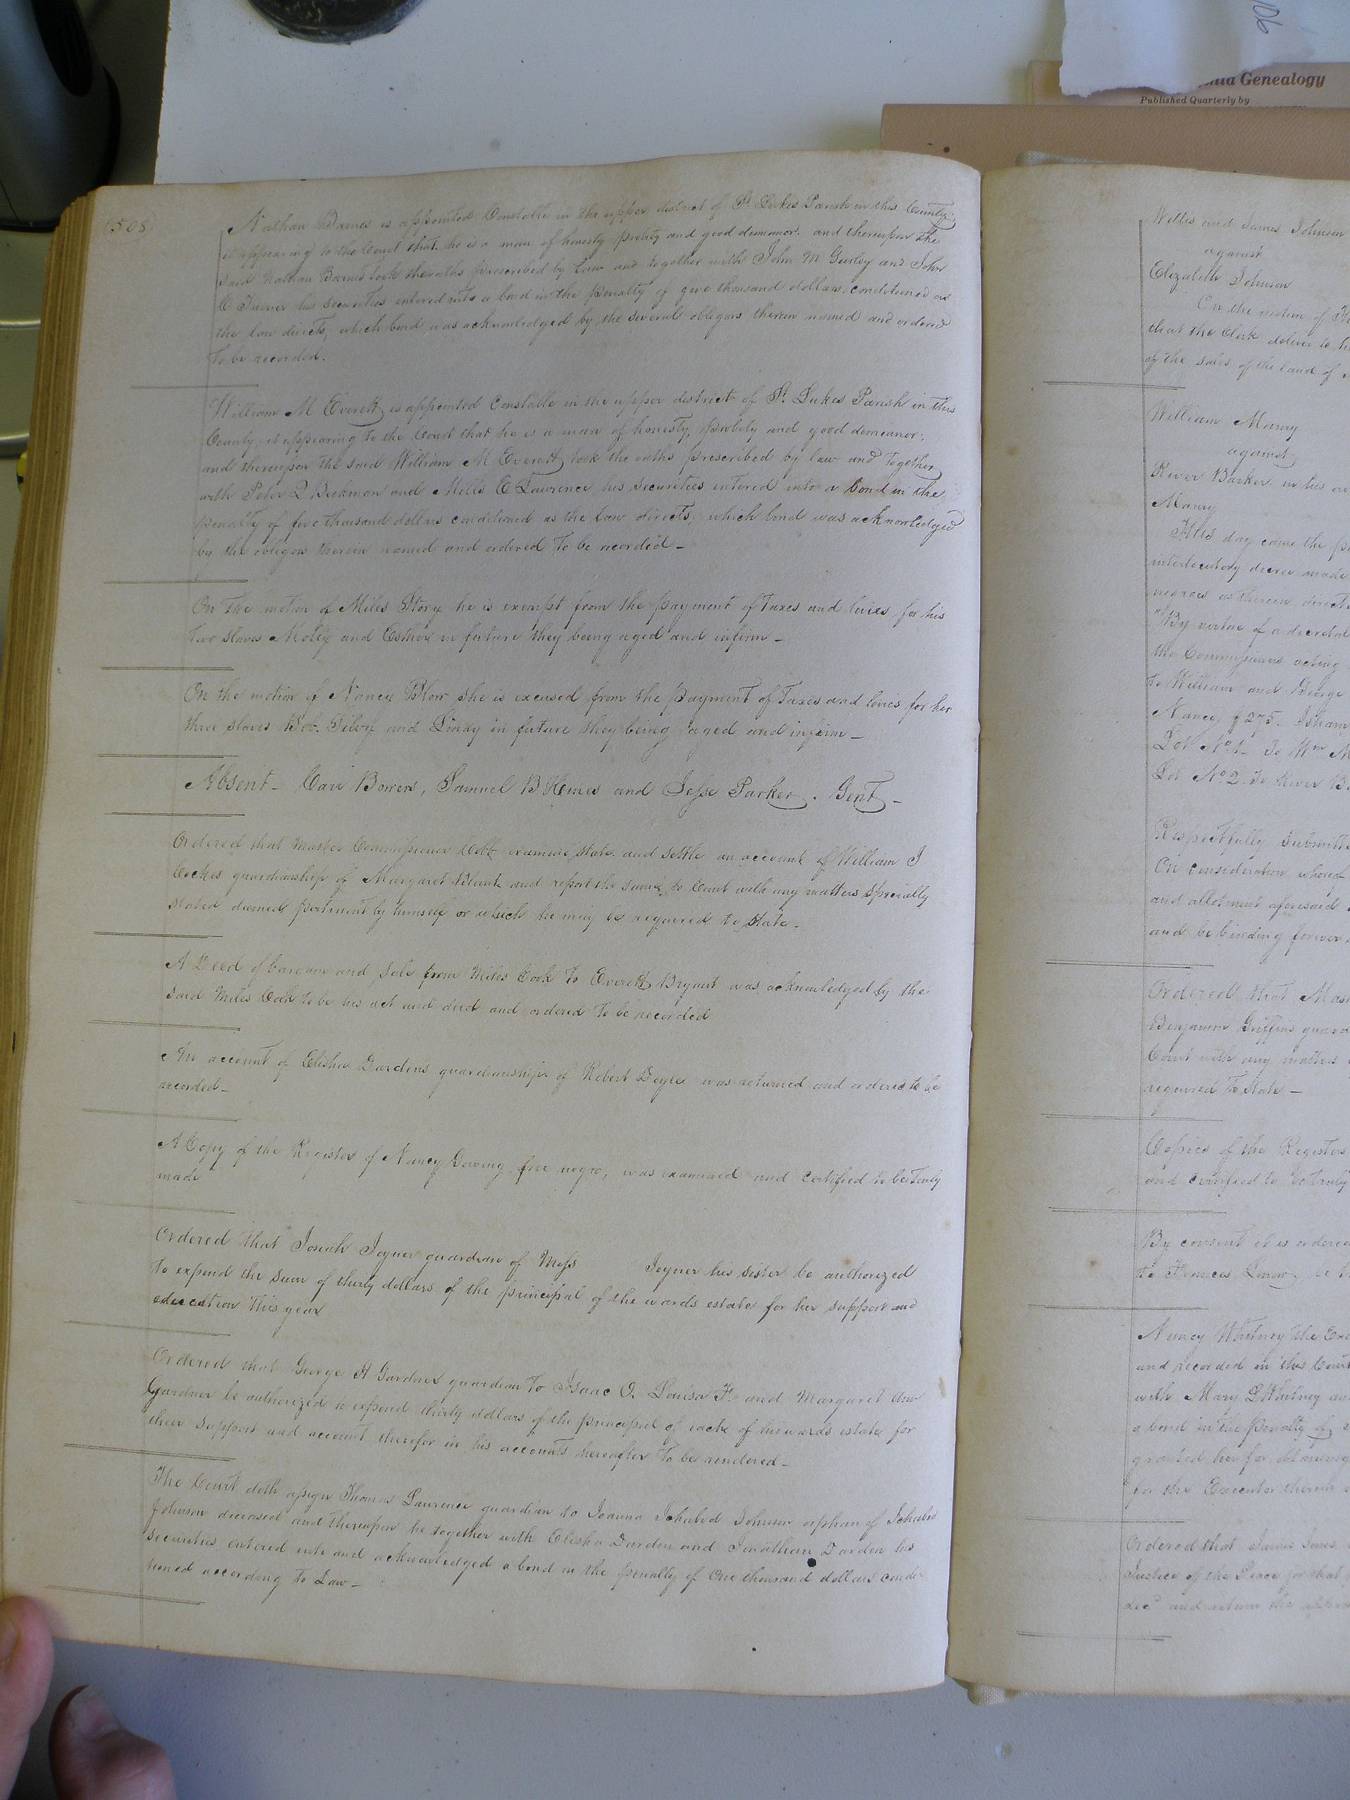 06
Genealogy
Published Quarterly by
508
Nathan Barnes is appointed Constable in the upper district of St. Lukes Parish in this County;
it appearing to the Court that he is a man of honesty probity and good demeanor. and thereupon the
said Nathan Barnes took the oaths prescribed by law and together with John M Gurley and John
C Turner his securities entered into a bond in the penalty of five thousand dollars, conditioned as
the law directs, which bond was acknowledged by the several obligors therein named and ordered
to be recorded.
William M Everett is appointed Constable in the upper district of St. Lukes Parish in this
County, it appearing to the Court that he is a man of honesty, probity and good demeanor;
and thereupon the said William M Everett took the oaths prescribed by law and together
with Peter Beekman and Mills C Lawrence his securities entered into a bond in the
penalty of five thousand dollars conditioned as the law directs, which bond was acknowledged
by the obligors therein named and ordered to be recorded—
On the motion of Miles Story he is exempt from the payment of taxes and levies for his
two slaves Molly and Esther in future they being aged and infirm—
On the motion of Nancy Blow she is excused from the payment of Taxes and levies for her
three slaves and Lindy in future they being aged and infirm—
Absent— Carr Bowers, Samuel B Hines and Jesse Parker. Gent—
Ordered that Master Commissioner Cobb examine state and settle an account of William J
Cockes guardianship of Margaret Blunt and report the same to Court with any matters specially
stated deemed pertinent by himself or which he may be required to state—
A Deed of bargain and sale from Miles Cook to Everett Bryant was acknowledged by the
said Miles Cook to be his act and deed and ordered to be recorded
An account of Elisha Dardens guardianship of Robert was returned and ordered to be
recorded—
A Copy of the Register of Nancy free negro, was examined and certified to be truly
made
Ordered that Josiah Joyner guardian of Miss Joyner his sister be authorized
to expend the sum of thirty dollars of the principal of the wards estate for her support and
education this year
Ordered that George H Gardner guardian to Isaac O. Louisa F. and Margaret Ann
Gardner be authorized to expend thirty dollars of the principal of each of his wards estate for
their support and account therefor in his accounts hereafter to be rendered—
The Court doth assign Thomas Lawrence guardian to Joanna Ichabod Johnson orphan of Ichabod
Johnson deceased and thereupon he together with Elisha Darden and Jonathan Darden his
securities entered into and acknowledged a bond in the penalty of One thousand dollars condi-
tioned according to Law—
Willis and James Johnson
against
Elizabeth Johnson
On the motion of
that the Clerk deliver to
of the sales of the land of
William Maney
against
Barker in his
Maney
This day came the
interlocutory decree made
negroes as therein direct
By virtue of a decretal
the Commissioners acting
to William and George
Nancy $275. Isham
Lot No 1. To Wm
Lot No 2. To
Respectfully submitt
On consideration whereof
and allotment aforesaid
and be binding forever
Ordered that Mas
Benjamin Griffins guard
Court with any matters
required to State—
Copies of the Registers
and certified to be truly
By consent it is ordered
to
Nancy Whitney the Exe
and recorded in this Court
with Mary Whitney
a bond in the penalty of
granted her for obtaining
for the Executor therein
Ordered that James Jones
Justice of the Peace for that
decd and return the